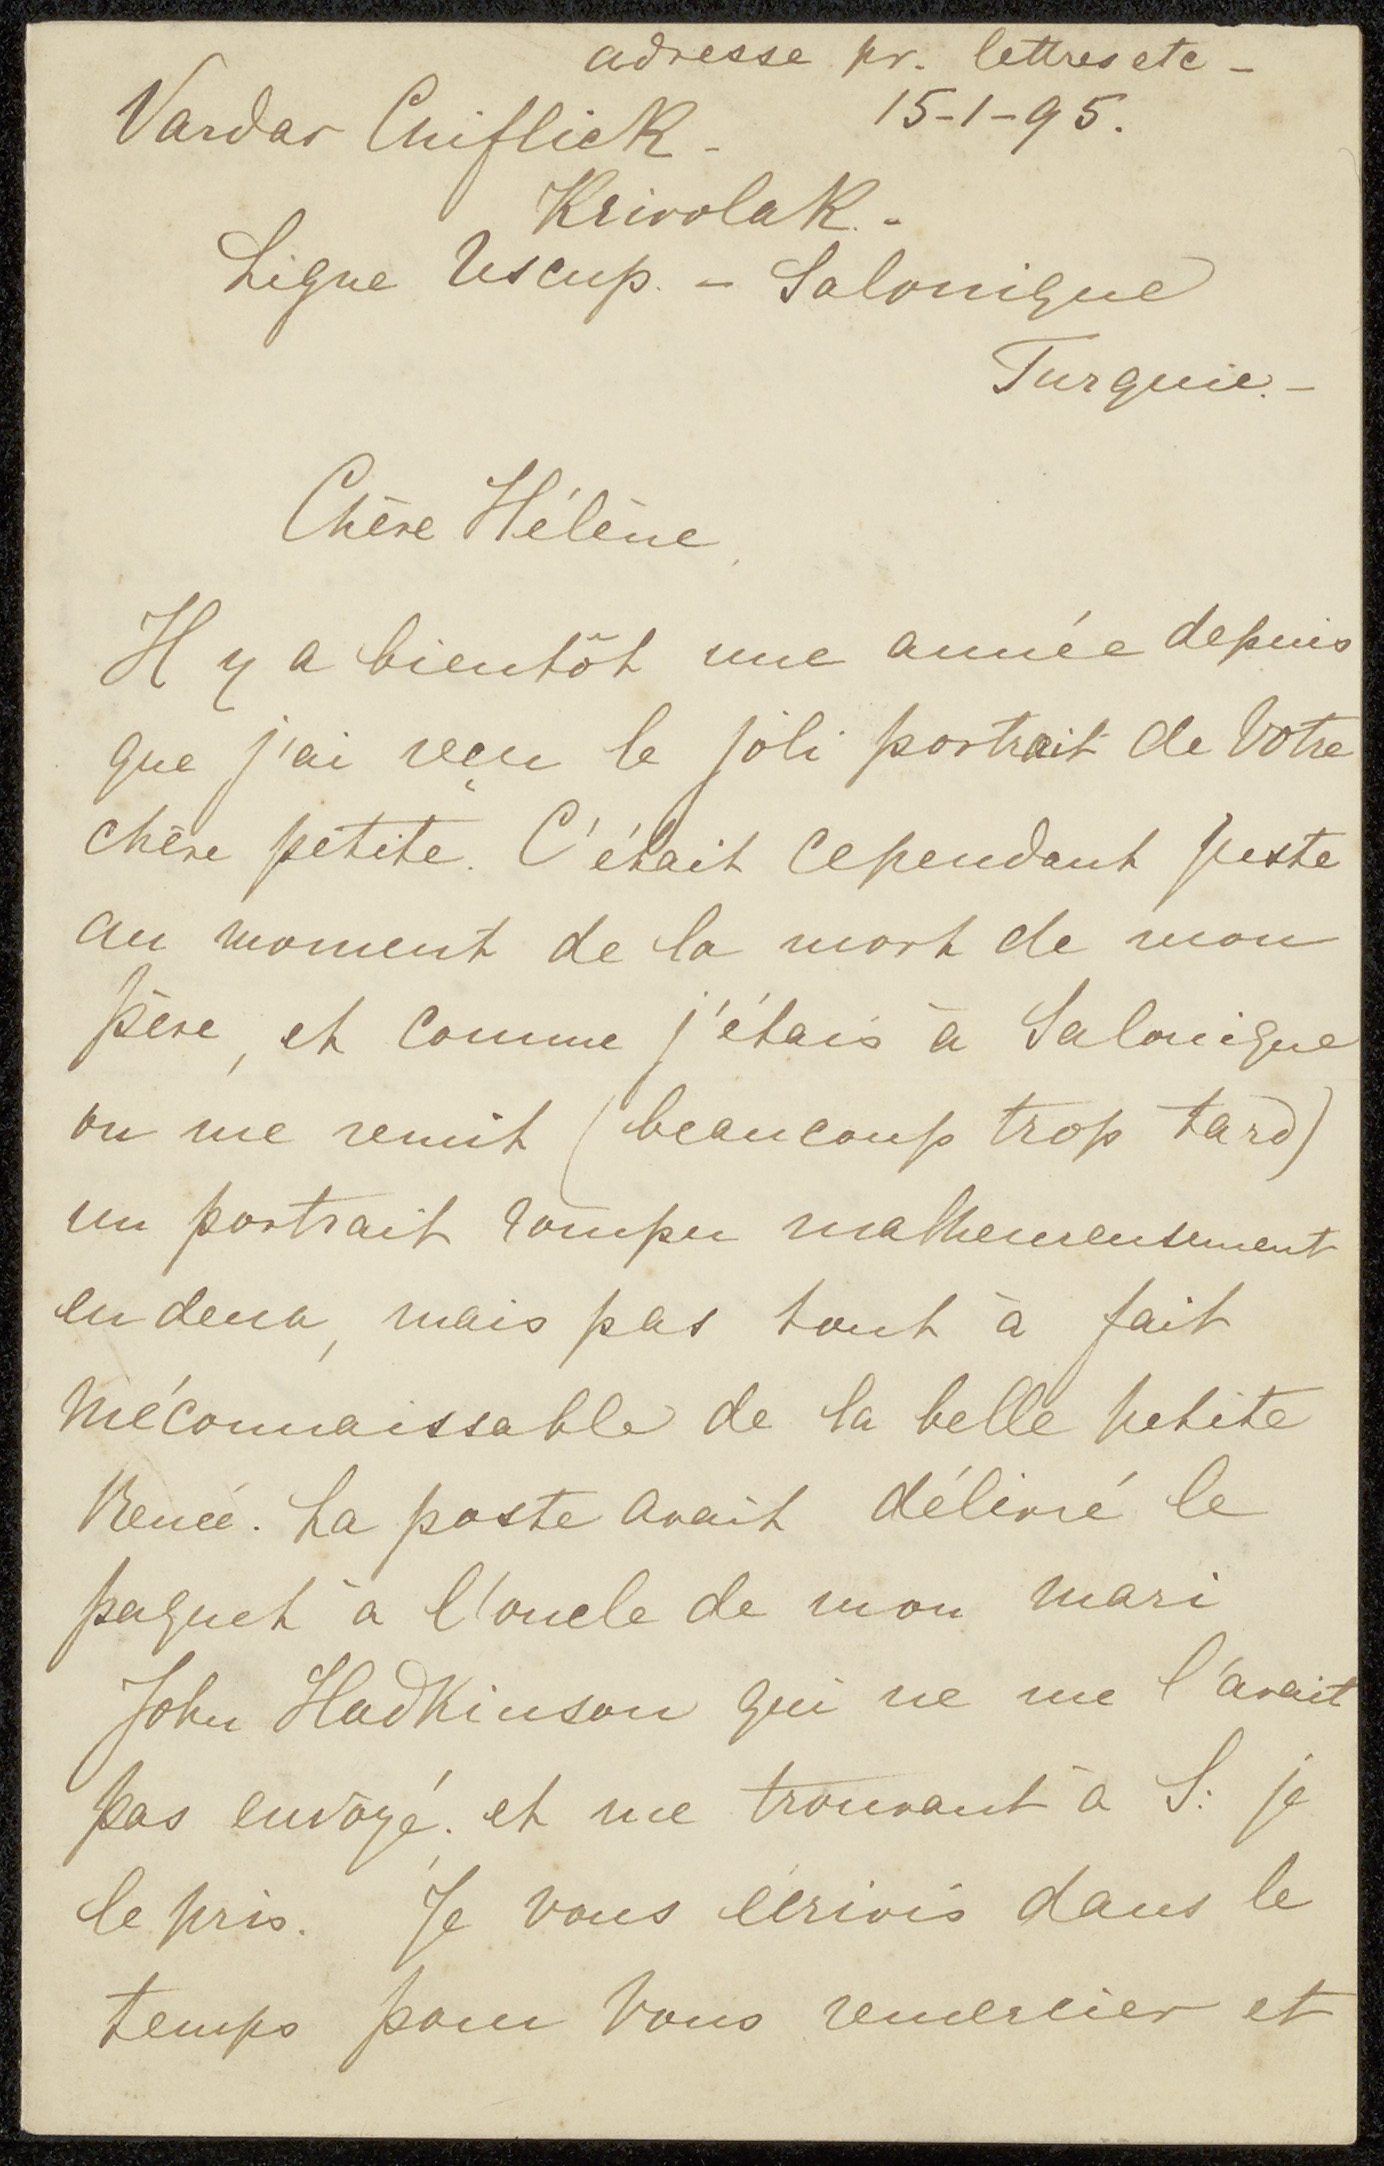 adresse pr. lettres etc -
Vardar Chiflick - 15-1-95.
Krivolak. -
Ligne Uscup. - Salonique
Turquie. -
Chère Hélène,
Il y a bientôt une année depuis
que j'ai reçu le joli portrait de votre
chère petite. C'était cependant juste
au moment de la mort de mon
père, et comme j'étais à Salonique
on me remit (beaucoup trop tard)
un portrait rompu malheureusement
en deux, mais pas tout à fait
méconnaissable de la belle petite
Renée. La poste avait délivré le
paquet à l'oncle de mon mari
John Hadkinson qui ne me l'avait
pas envoyé, et me trouvant à S: je
le pris. Je vous écrivis dans le
temps pour vous remercier et